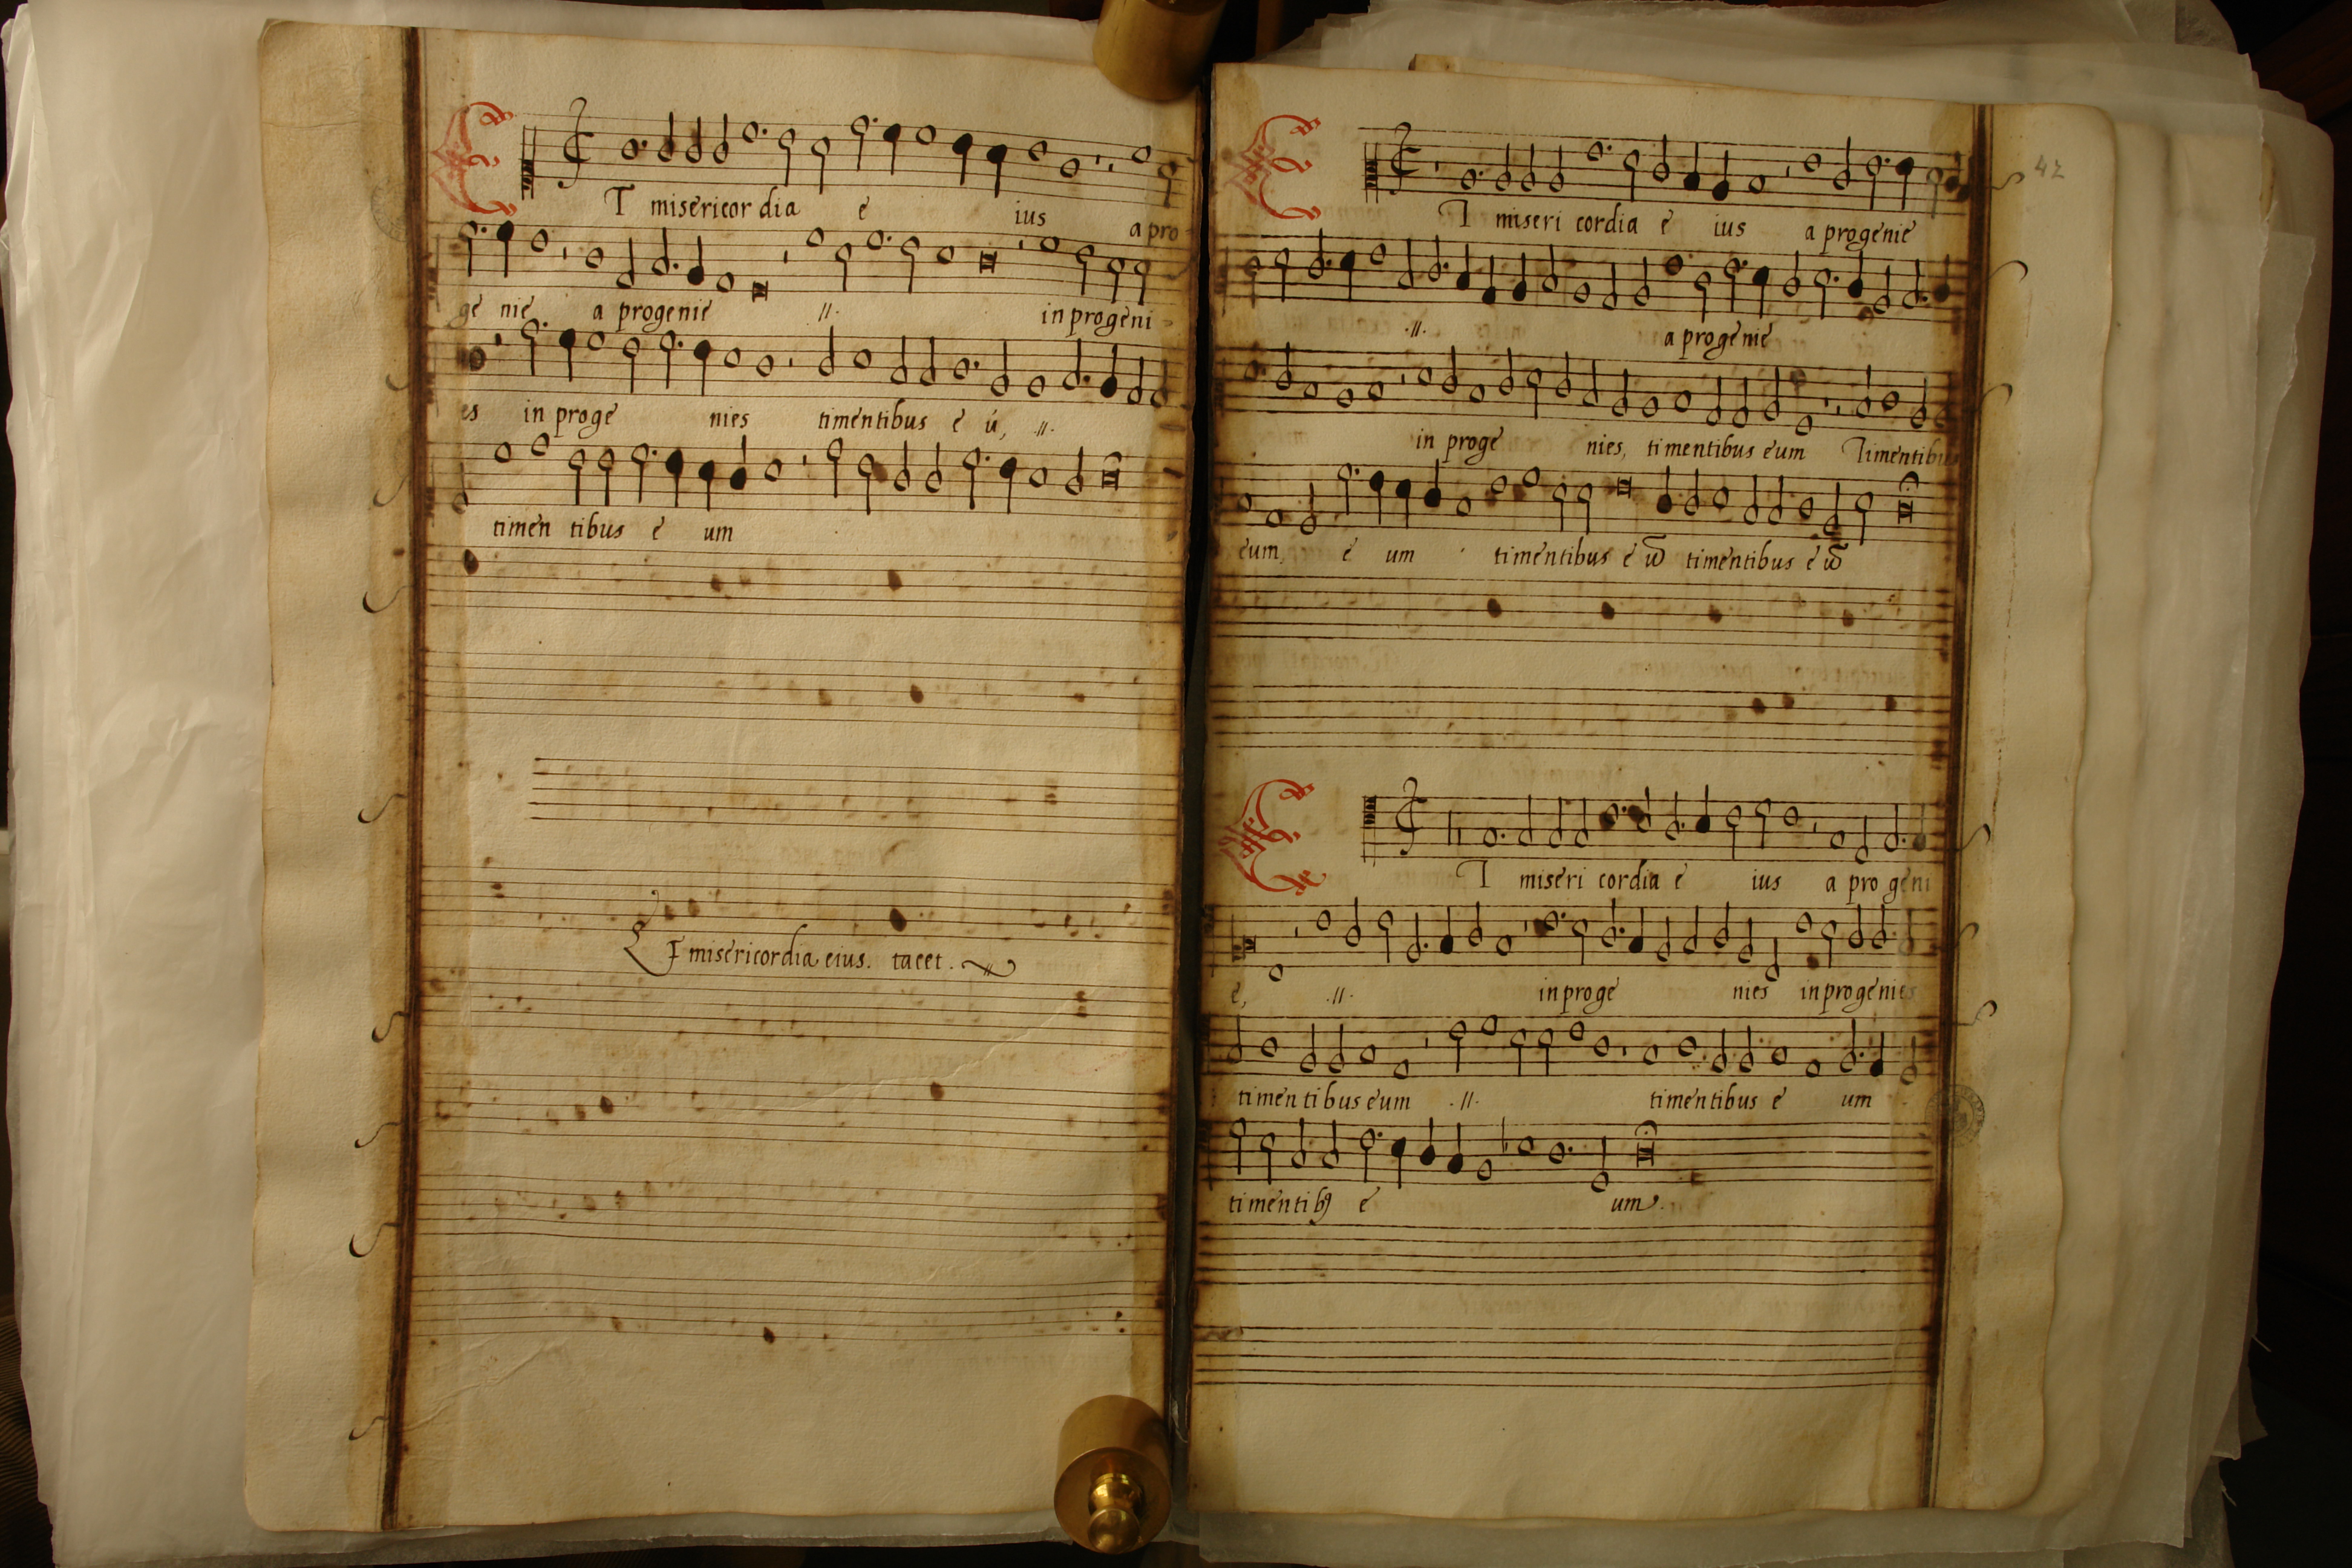 ET misericordia e ius a pro
ge nie a progenie .//. in progeni
es in proge nies timentibus e ū, .//.
timen tibus e um
Et misericordia eius. tacet.
42
ET miseri cordia e ius a progenie
.//. a progenie
in proge nies, timentibus eum Timentibus
eum, e um timentibus e ū timentibus e ū
ET miseri cordia e ius a pro geni
e, .//. in proge nies in progenies
timentibus eum .//. timentibus e um
timentibꝰ e um.